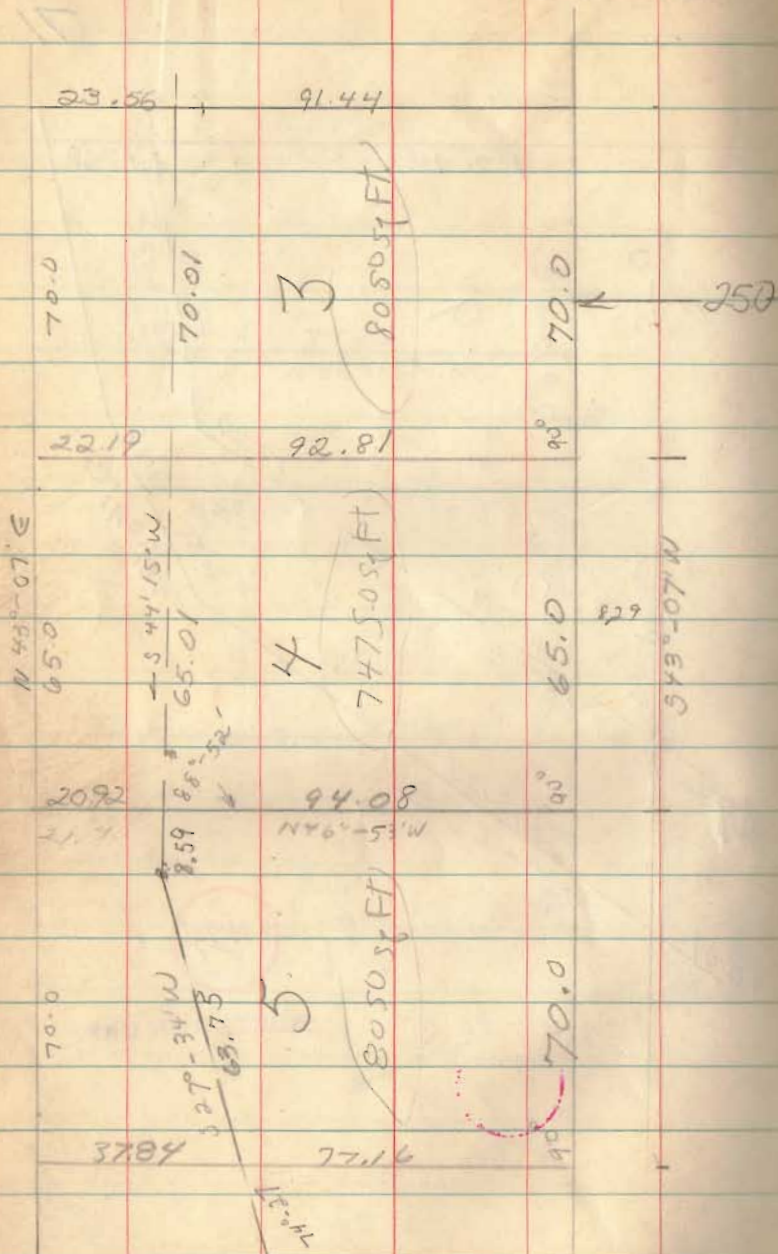 23.56
91.44
70.0
70.01
3
8050 Sq Ft
70.0
250
22.19
92.81
90°
N 43°-07' E
65.0
S 44' 15" W
65.01
4
7475.0 Sq Ft
65.0
829
S 43°-07' W
88°-52'
20.92
94.08
90°
N 46°-53' W
8.59
70.0
S 27°-34' W
63.75
5
8050 Sq Ft
70.0
37.84
77.16
90°
74°-27